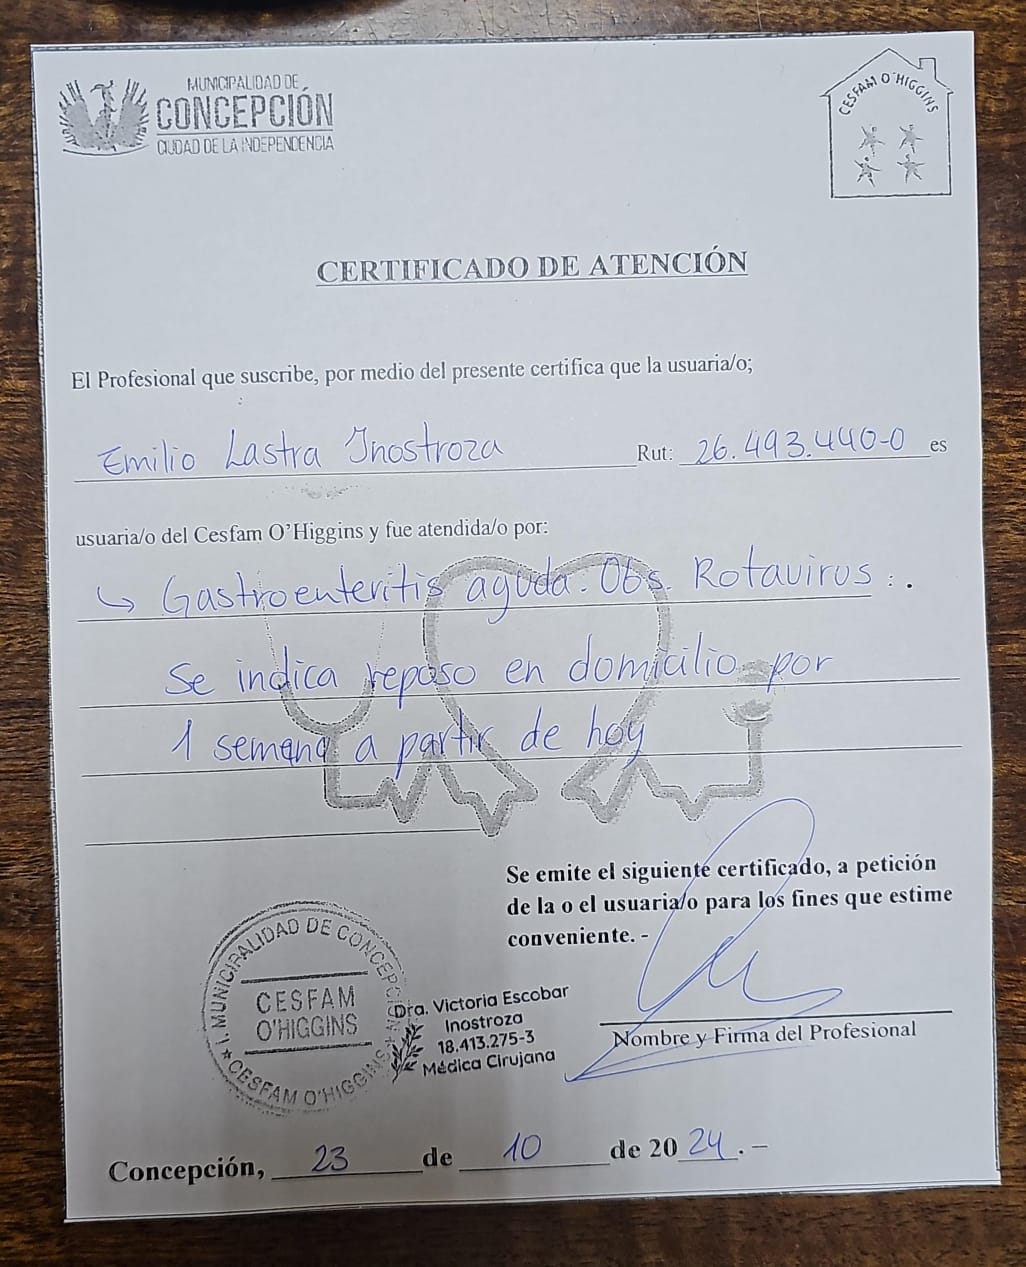 MUNICIPALIDAD DE
CONCEPCIÓN
CIUDAD DE LA INDEPENDENCIA
CESFAM O'HIGGINS
CERTIFICADO DE ATENCIÓN
El Profesional que suscribe, por medio del presente certifica que la usuaria/o;
Emilio Lastra Inostroza Rut: 26.493.440-0 es
usuaria/o del Cesfam O'Higgins y fue atendida/o por:
↳ Gastroenteritis aguda. Obs. Rotavirus :.
Se indica reposo en domicilio por
1 semana a partir de hoy
Se emite el siguiente certificado, a petición
de la o el usuaria/o para los fines que estime
conveniente. -
I. MUNICIPALIDAD DE CONCEPCION
CESFAM
O'HIGGINS
★ CESFAM O'HIGGINS ★
Dra. Victoria Escobar
Inostroza
18.413.275-3
Médica Cirujana
Nombre y Firma del Profesional
Concepción, 23 de 10 de 2024. -